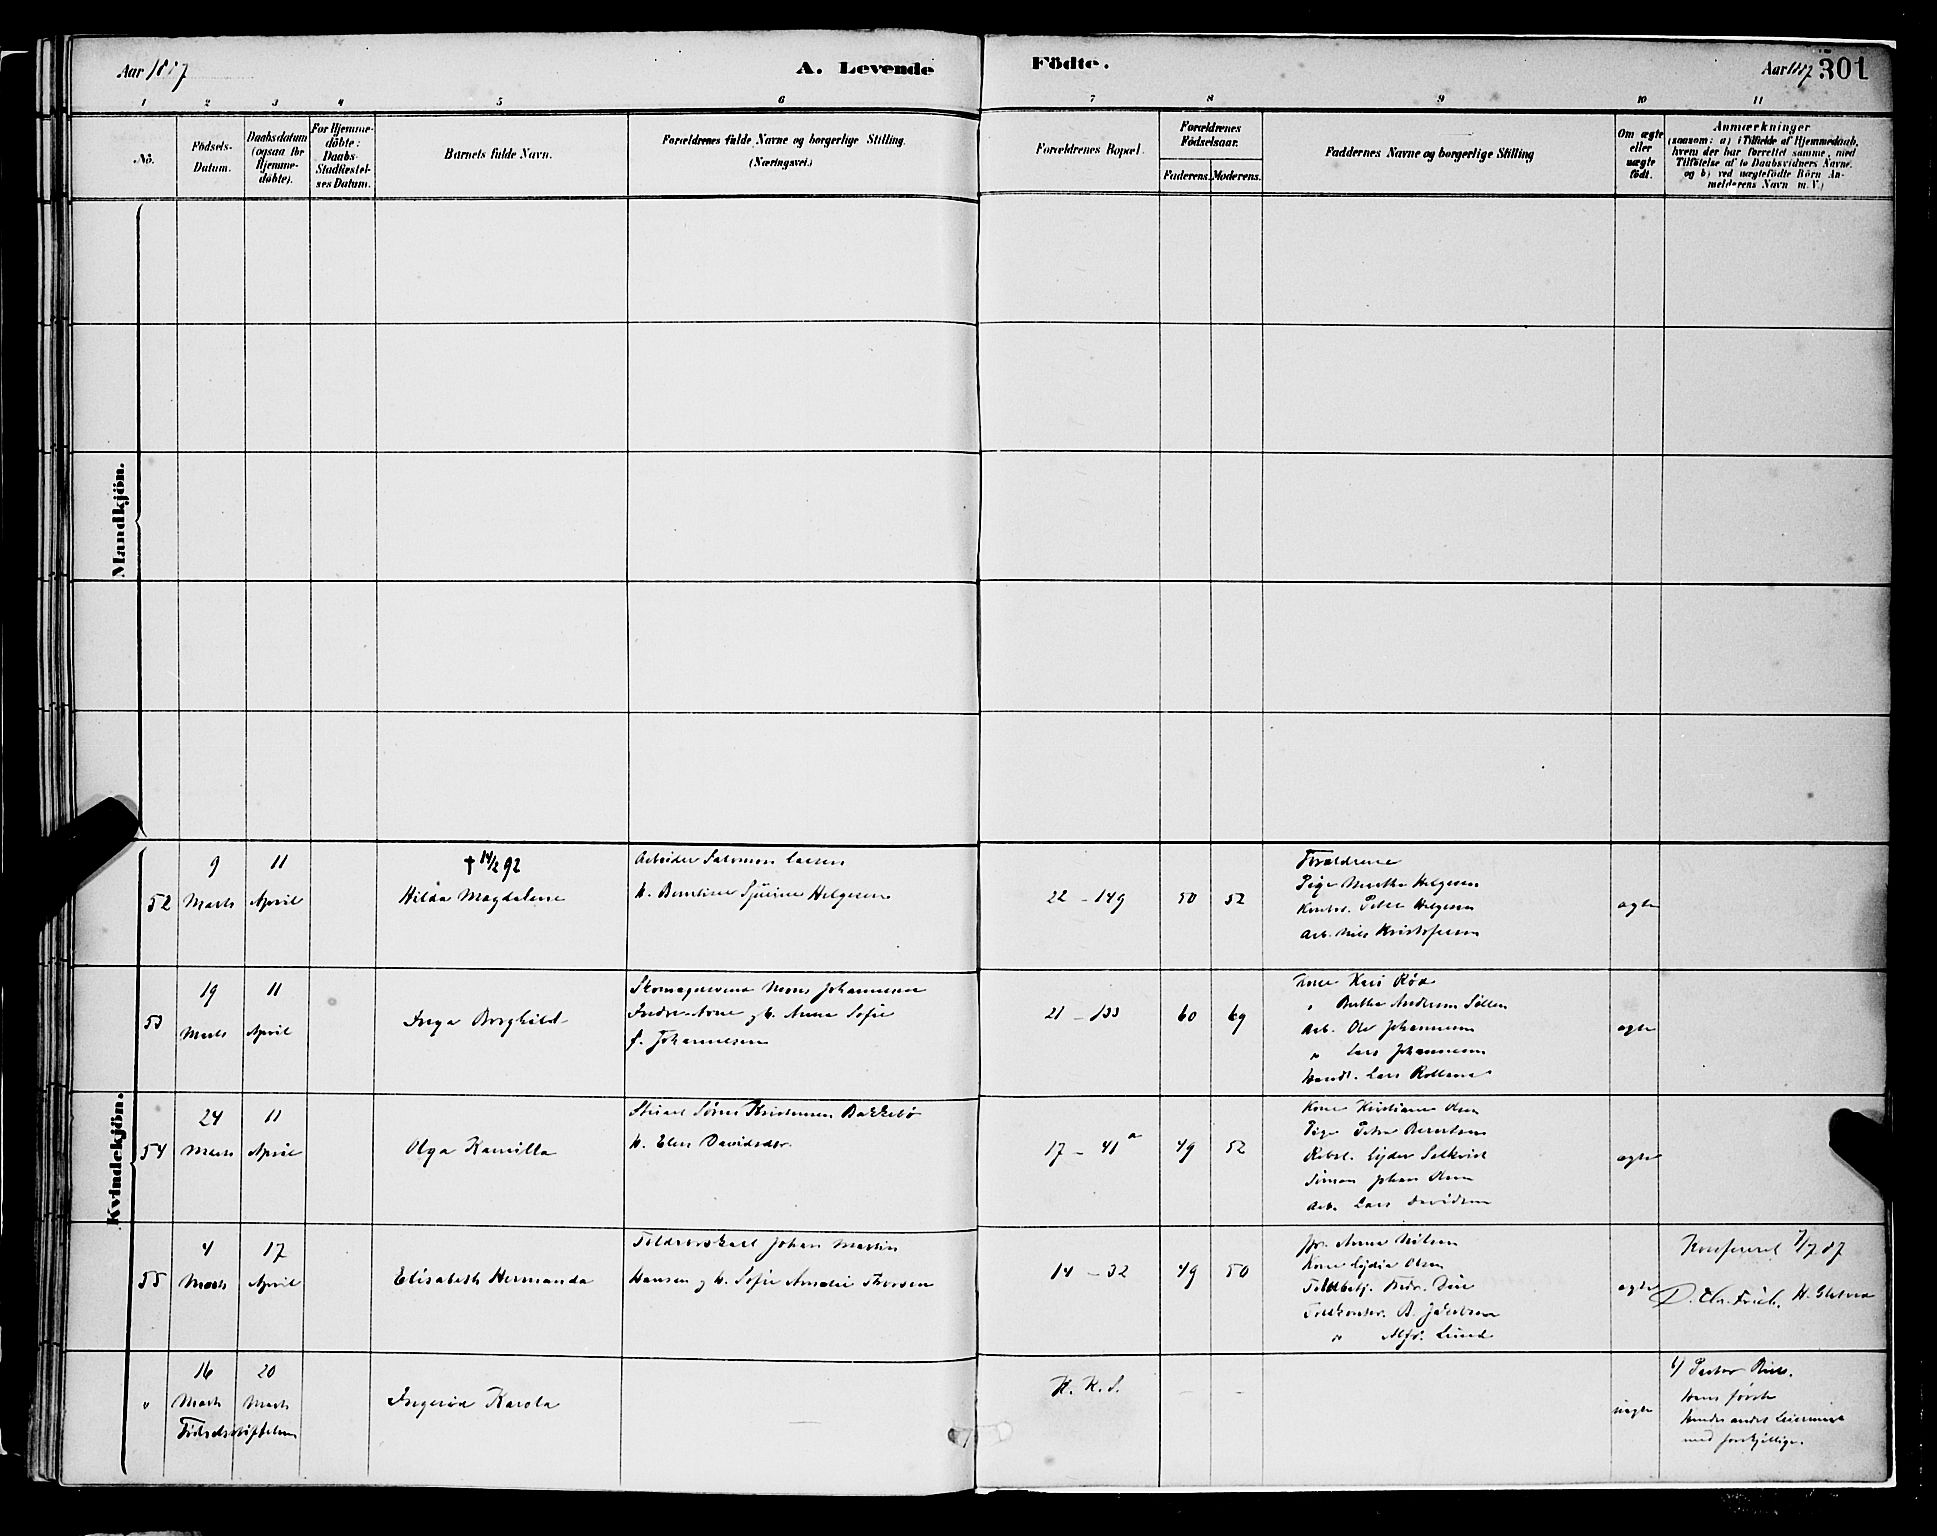 Aar 1887
A. Levende
Födte.
Aar 1887
301
1 2 3 4 5 6 7 8 9 10 11
No.
Födsels-
Datum.
Daabsdatum
(ogsaa for
Hjemme-
döbte).
For Hjemme-
döbte:
Daabs-
Stadfæstel-
ses Datum.
Barnets fulde Navn.
Forældrenes fulde Navne og borgerlige Stilling.
(Næringsvei.)
Forældrenes Bopæl.
Forældrenes
Födselsaar.
Faderens. Moderens.
Faddernes Navne og borgerlige Stilling
Om ægte
eller
uægte
födt.
Anmærkninger
(saasom: a) i Tilfælde af Hjemmedaab,
hvem der har forrettet samme, med
Tilföielse af to Daabsvidners Navne.
og b) ved uægtefödte Börn An-
melderens Navn m.V.)
Mandkjön.
Kvindekjön.
52
9
Marts
11
April
† 14/2 92
Hilda Magdalene
Arbeider Salomon Larsen
h. Berntine Sjurine Helgesen
22 - 149
50
52
Forældrene
Pige Martha Helgesen
Petter Helgesen
Arb. Nils Kristofersen
ægte
53
19
Marts
11
April
Inga Borghild
Skomagersvend Mons Johannesen
Indre-Arne og h. Anna Sofie
f. Johannesen
21 - 133
60
69
Kone Kari Röd
" Berthe Andersen
Arb. Ole Johannesen
" Lars Johannesen
Handl. Lars
ægte
54
24
Marts
11
April
Olga Kamilla
Stuart Sören Kristensen Bakkebö
h. Elen Davidsdtr.
17 - 41 a
49
52
Kone Kristiane Olsen
Pige Petra Berentsen
Lyder
Simon Johan Olsen
Arb. Lars Davidsen
ægte
55
4
Marts
17
April
Elisabeth Hermanda
Toldrorskarl Johan Martin
Hansen og h. Sofie Amalie Thorsen
14 - 32
49
50
Anna Nilsen
Kone Lydia Olsen
Toldbetj. Fredr.
A. Jakobsen
" Alfr. Lund
ægte
Konfereret 7/7 87
D. Chr. Frich.
"
16
Marts
20
Marts
Födselsstiftelsen
Ingerid Karola
K. K. S.
- -
uægte
Pastor
Hans förste
Hendes andet Leiermaal
med forskjellige.